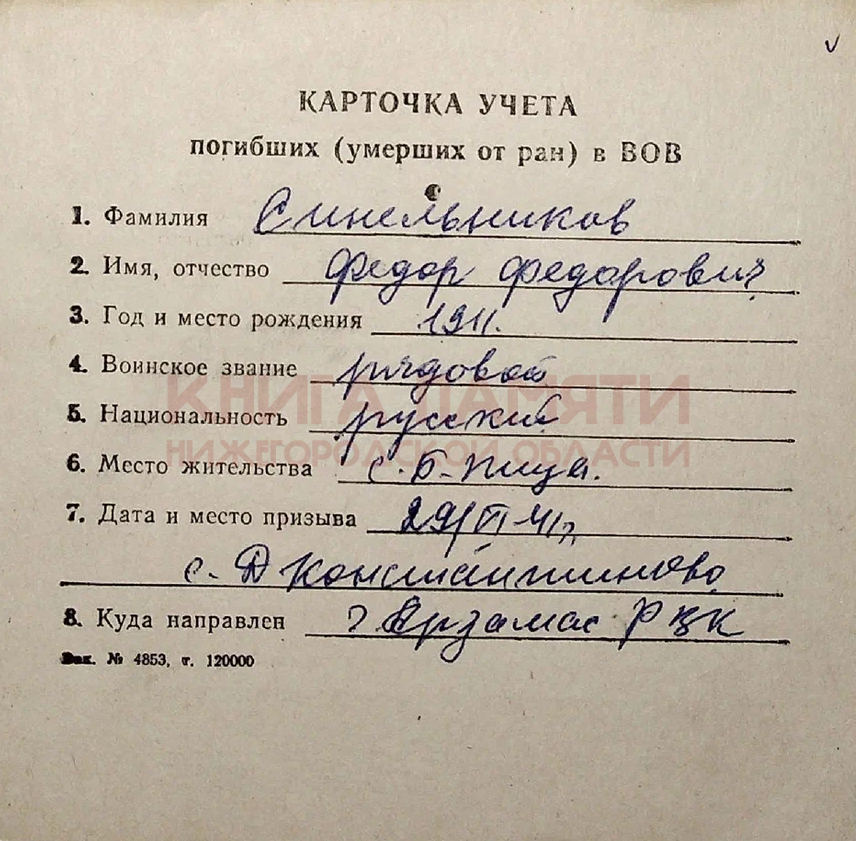 КАРТОЧКА УЧЕТА
погибших (умерших от ран) в ВОВ
1. Фамилия Синельников
2. Имя, отчество Федор Федорович
3. Год и место рождения 1911.
4. Воинское звание рядовой
5. Национальность русский
КНИГА ПАМЯТИ
НИЖЕГОРОДСКОЙ ОБЛАСТИ
6. Место жительства с. Б-Пица.
7. Дата и место призыва 29/VI-41г.
с. Д Константиново
8. Куда направлен г Арзамас РВК
Зак. № 4853, т. 120000